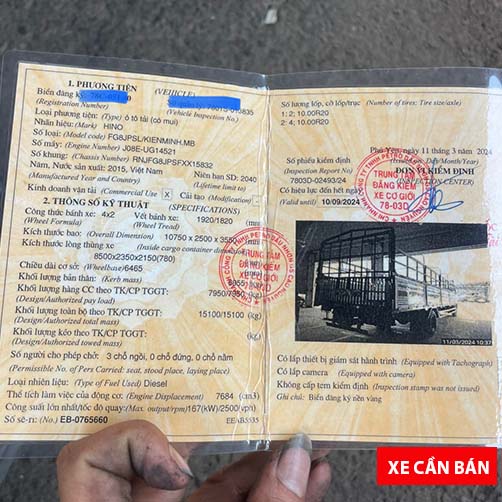 1. PHƯƠNG TIỆN (VEHICLE)
Biển đăng ký:
(Registration Number) (Vehicle Inspection No.)
Loại phương tiện: (Type) ô tô tải (có mui)
Nhãn hiệu: (Mark) HINO
Số loại: (Model code) FG8JPSL/KIENMINH.MB
Số máy: (Engine Number) J08E-UG14521
Số khung: (Chassis Number) RNJFG8JPSFXX15832
Năm, Nước sản xuất: 2015, Việt Nam Niên hạn SD: 2040
(Manufactured Year and Country) (Lifetime limit to)
Kinh doanh vận tải (Commercial Use) X Cải tạo (Modification)
2. THÔNG SỐ KỸ THUẬT (SPECIFICATIONS)
Công thức bánh xe: 4x2 Vết bánh xe: 1920/1820 (mm)
(Wheel Formula) (Wheel Tread)
Kích thước bao: (Overall Dimension) 10750 x 2500 x 3550 (mm)
Kích thước lòng thùng xe: (Inside cargo container dimension)
8500x2350x2150(780)
Chiều dài cơ sở: (Wheelbase) 6465
Khối lượng bản thân: (Kerb mass) (kg)
Khối lượng hàng CC theo TK/CP TGGT: (kg)
(Design/Authorized pay load)
Khối lượng toàn bộ theo TK/CP TGGT: 15100/15100 (kg)
(Design/Authorized total mass)
Khối lượng kéo theo TK/CP TGGT: (kg)
(Design/Authorized towed mass)
Số người cho phép chở: 3 chỗ ngồi, 0 chỗ đứng, 0 chỗ nằm
(Permissible No. of Pers Carried: seat, stood place, laying place)
Loại nhiên liệu: (Type of Fuel Used) Diesel
Thể tích làm việc của động cơ: (Engine Displacement) 7684 (cm3)
Công suất lớn nhất/tốc độ quay: (Max. output/rpm) 167(kW)/2500(vph)
Số sê-ri: (No.) EB-0765660 EEAB5535
Số lượng lốp, cỡ lốp/trục (Number of tires: Tire size/axle)
1: 2; 10.00R20
2: 4; 10.00R20
Phú Yên, ngày 11 tháng 3 năm 2024
Số phiếu kiểm định ĐƠN VỊ KIỂM ĐỊNH
(Inspection Report No)
7803D-02493/24
Có hiệu lực đến hết ngày
(Valid until) 10/09/2024
TRUNG TÂM
ĐĂNG KIỂM
XE CƠ GIỚI
78-03D
TRUNG TÂM
ĐĂNG KIỂM
XE CƠ GIỚI
11/03/2024
Có lắp thiết bị giám sát hành trình (Equipped with Tachograph)
Có lắp camera (Equipped with camera)
Không cấp tem kiểm định (Inspection stamp was not issued)
Ghi chú: Biển đăng ký nền vàng
XE CẦN BÁN